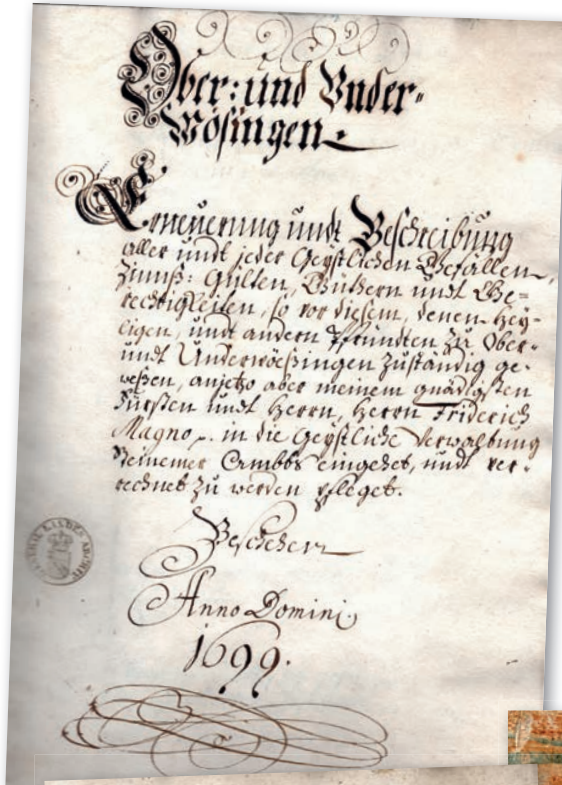 Ober: und Under-
Wösingen.
Erneuerung undt Beschreibung
aller undt jeder Geystlichen Gefällen,
Zinnß: Gülten, Güthern undt Ge-
rechtigkeiten, so vor diesem, denen Hey-
ligen, undt andern Pfründten zu Ober-
undt Underwößingen zuständig ge-
weßen, anjetzo aber meinem gnädigsten
Fürsten undt Herrn, Herrn Friderich
Magno p. in die Geystliche Verwaltung
Steinemer Ambbts eingehet, undt ver-
rechnet zu werden pfleget.
Beschehen
Anno Domini
1699.